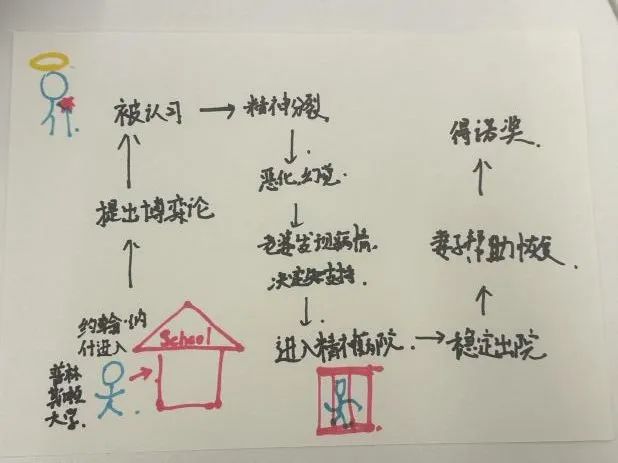 约翰·纳
什进入
普林
斯顿
大学.
School
提出博弈论
被认习
精神分裂.
恶化.幻觉.
老婆发现病情.
决定支持.
进入精神病院.
稳定出院
妻子帮助恢复.
得诺奖.